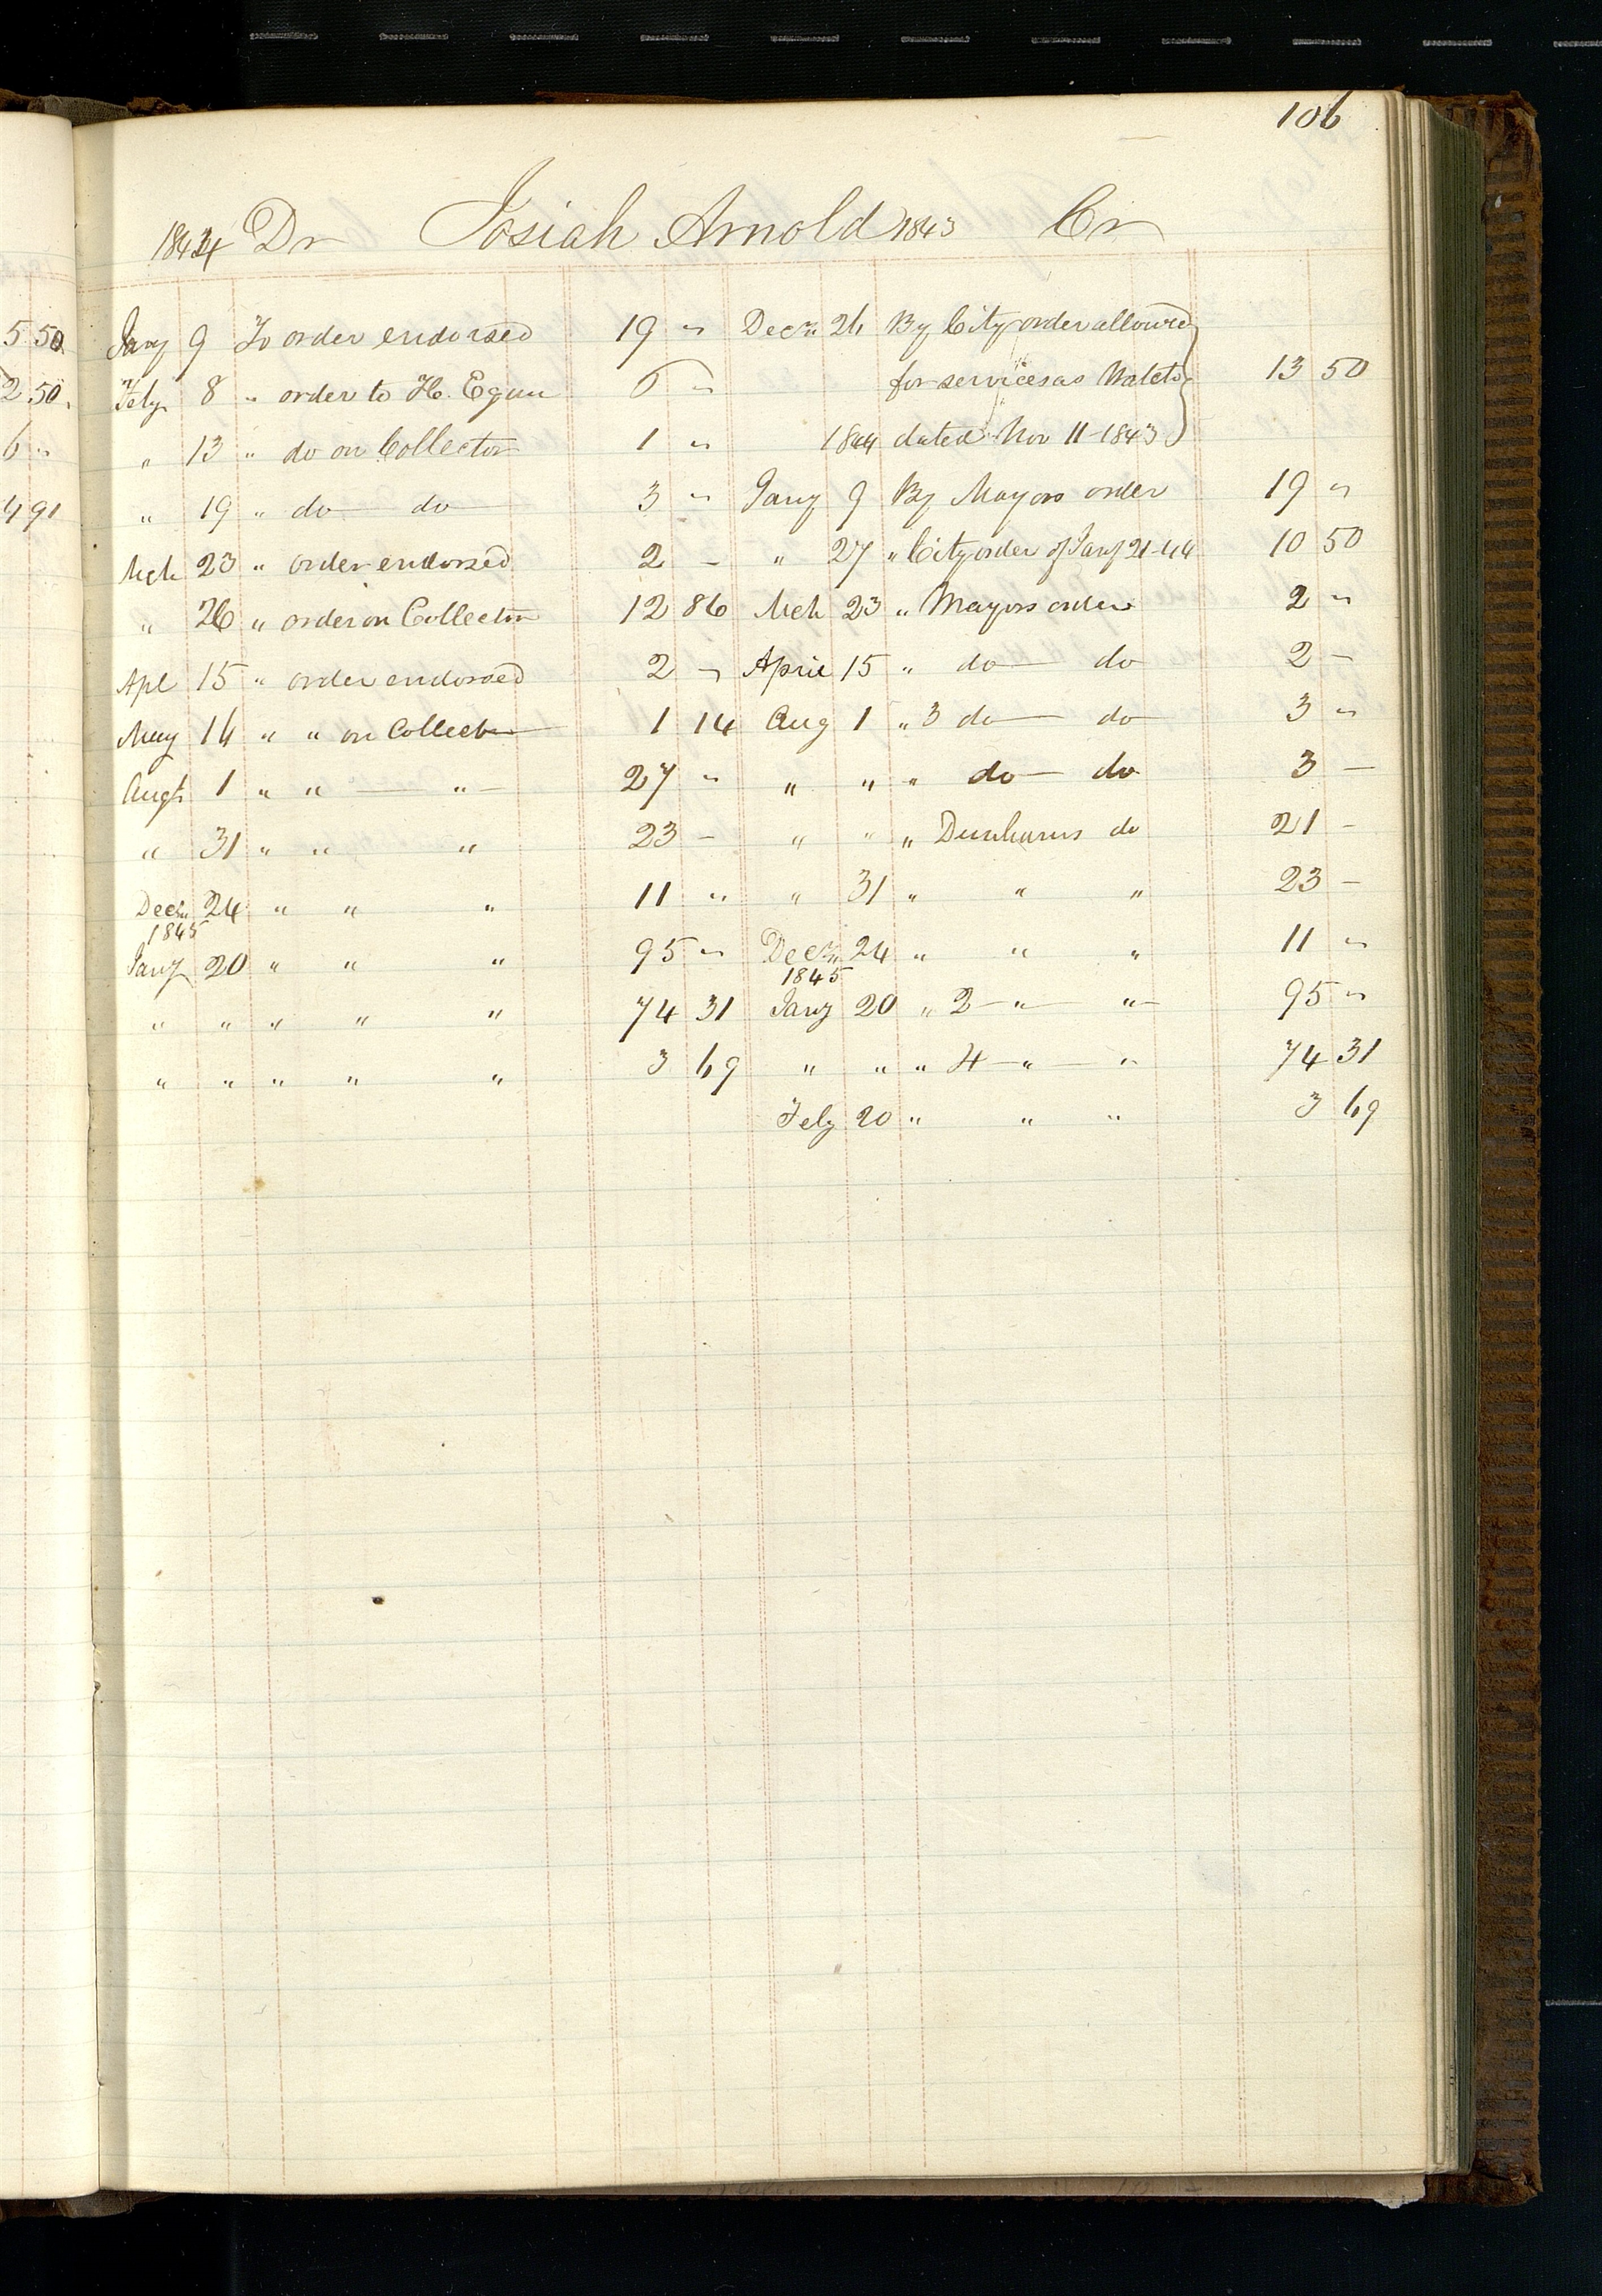 106
1844 Dr Josiah Arnold 1843 Cr
5 50 Jany 9 To order endorsed 19 " Decr 26 By City order allowed
2 50 Feby 8 " order to H. Egan 6 " for services as Watch 13 50
6 " " 13 " do on Collector 1 " 1844 dated Nov 11-1843
4 91 " 19 " do do 3 " Jany 9 By Mayors order 19 "
Mch 23 " order endorsed 2 - " 27 " City order of Jany 21-44 10 50
" 26 " order on Collector 12 86 Mch 23 " Mayors order 2 "
Apl 15 " order endorsed 2 " April 15 " do do 2 -
May 14 " " on Collector 1 14 Aug 1 " 3 do do 3 "
Augt 1 " " " 27 " " " " do do 3 -
" 31 " " " 23 - " " " Dunhams do 21 -
Decr 24 " " " 11 " " 31 " " " 23 -
1845
Jany 20 " " " 95 " Decr 24 " " " 11 "
1845
" " " " " 74 31 Jany 20 " 2 " " 95 "
" " " " " 3 69 " " " 4 " " 74 31
Feby 20 " " " 3 69